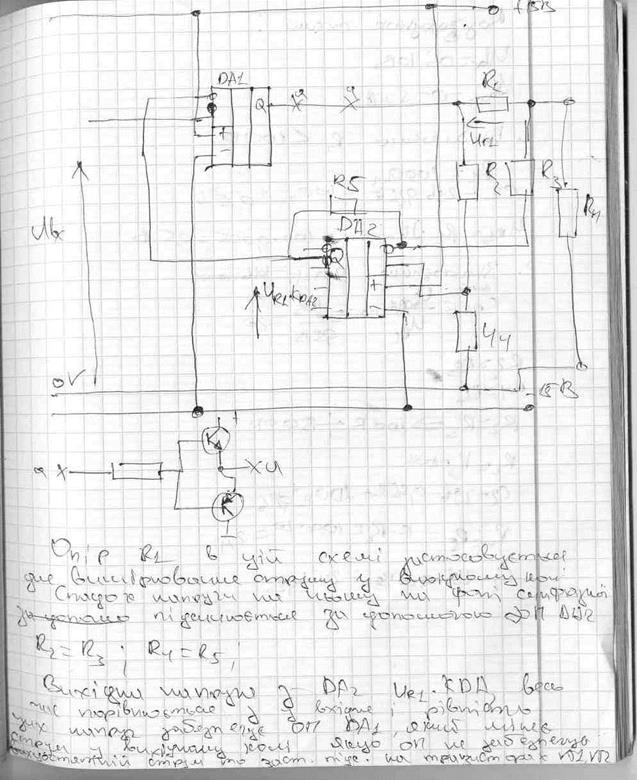 +15В
DA1
Q
x
y
R1
UR1
R2
R3
Rн
R5
DA2
Q
Uвх
UR1·KDA2
R4
0V
-15В
x
xy
Опір R1 в цій схемі застосовується
для вимірювання струму у вихідному колі
Спадок напруги на ньому на фоні синфазної
підсилюється за допомогою ОП DA2
R2 = R3 ; R4 = R5 ;
Вихідна напруга з DA2 UR1·KDA2 весь
час порівнюється з вхідне і рівність
цих напруг забезпечує ОП DA1, який змінює
струм у вихідному колі якщо ОП не забезпечує
струм то заст. підс. на транзисторах VT1 VT2